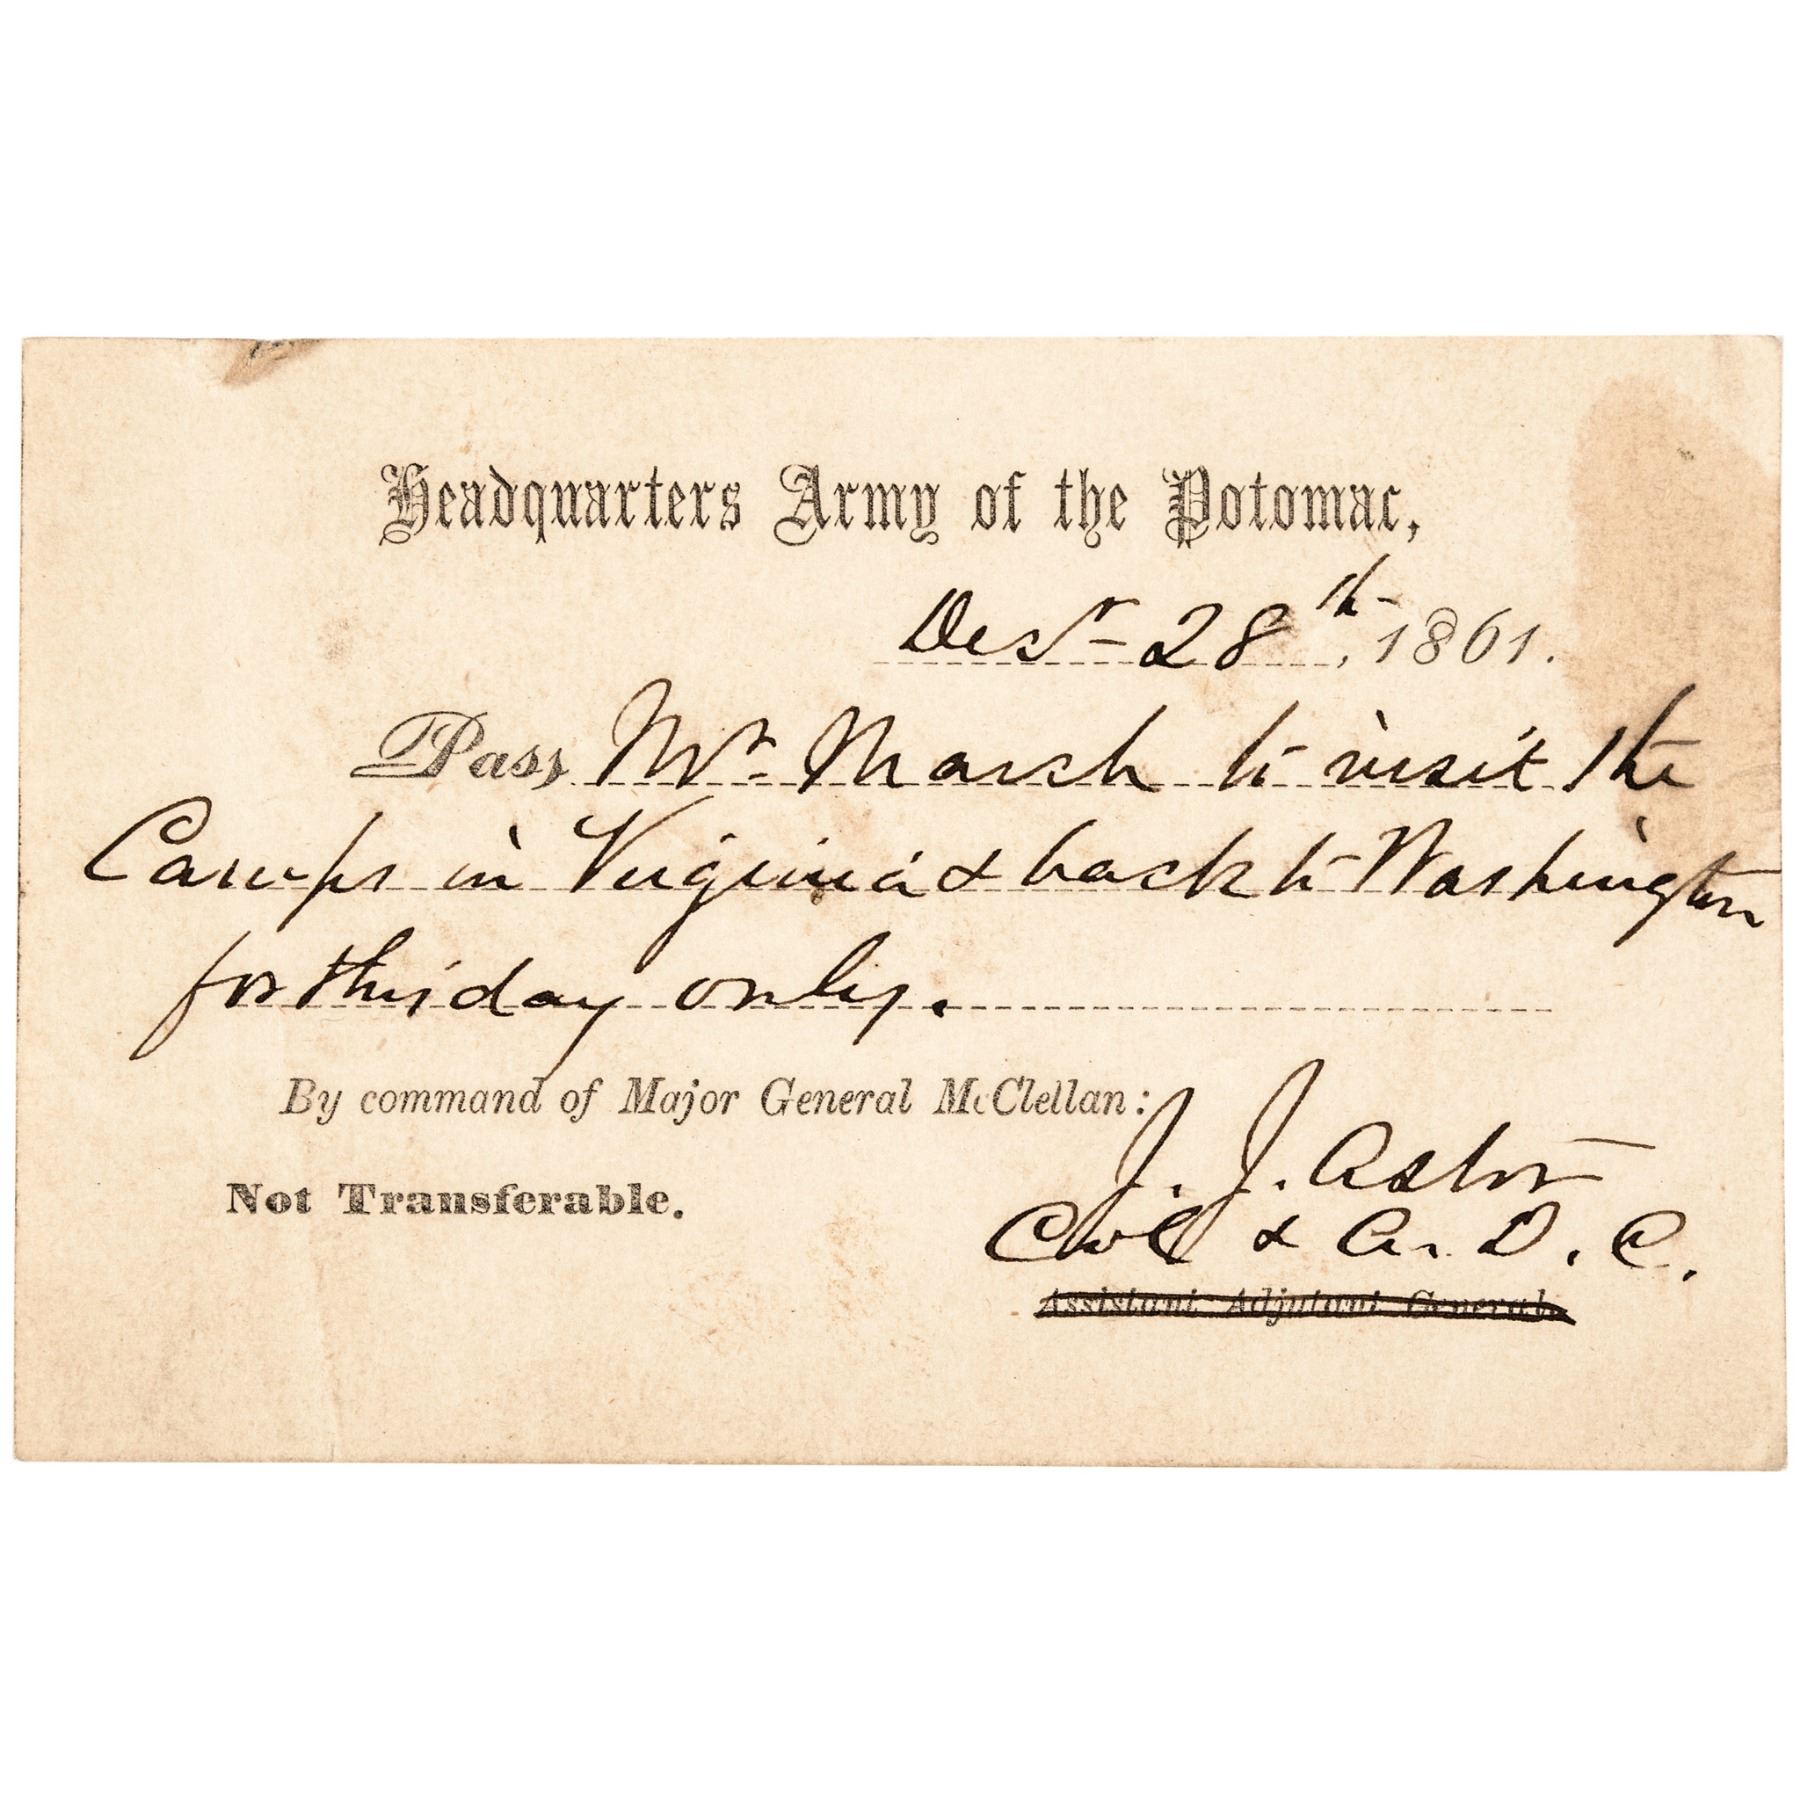 Headquarters Army of the Potomac,
Decr 28th, 1861.
Pass Mr. March to visit the
Camps in Virginia & back to Washington
for this day only.
By command of Major General McClellan:
J. J. Astor
Not Transferable.
Col & A. D. C.
Assistant Adjutant General.